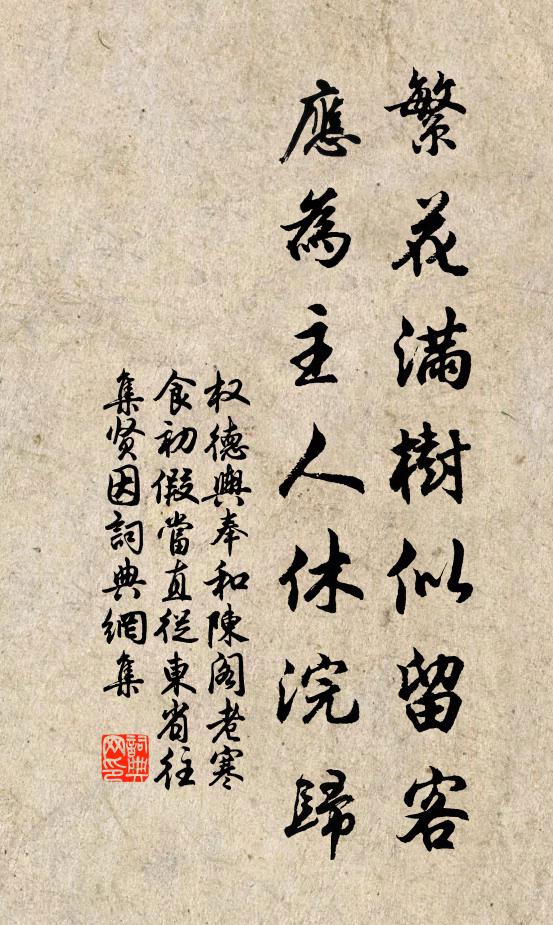 繁花滿樹似留客
應為主人休浣歸
权德輿奉和陳阁老寒
食初假當直從東省往
集贤因詞典網集
詞典网印